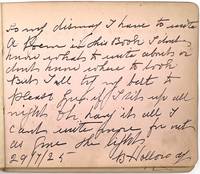 To my dismay I have to write
A Poem in this Book I dont
know what to write about or
dont know where to look
But I'll try my best to
please you if I sit up all
night Oh hang it all I
cant write more for out
as gone the light
29/7/25 B Holloway